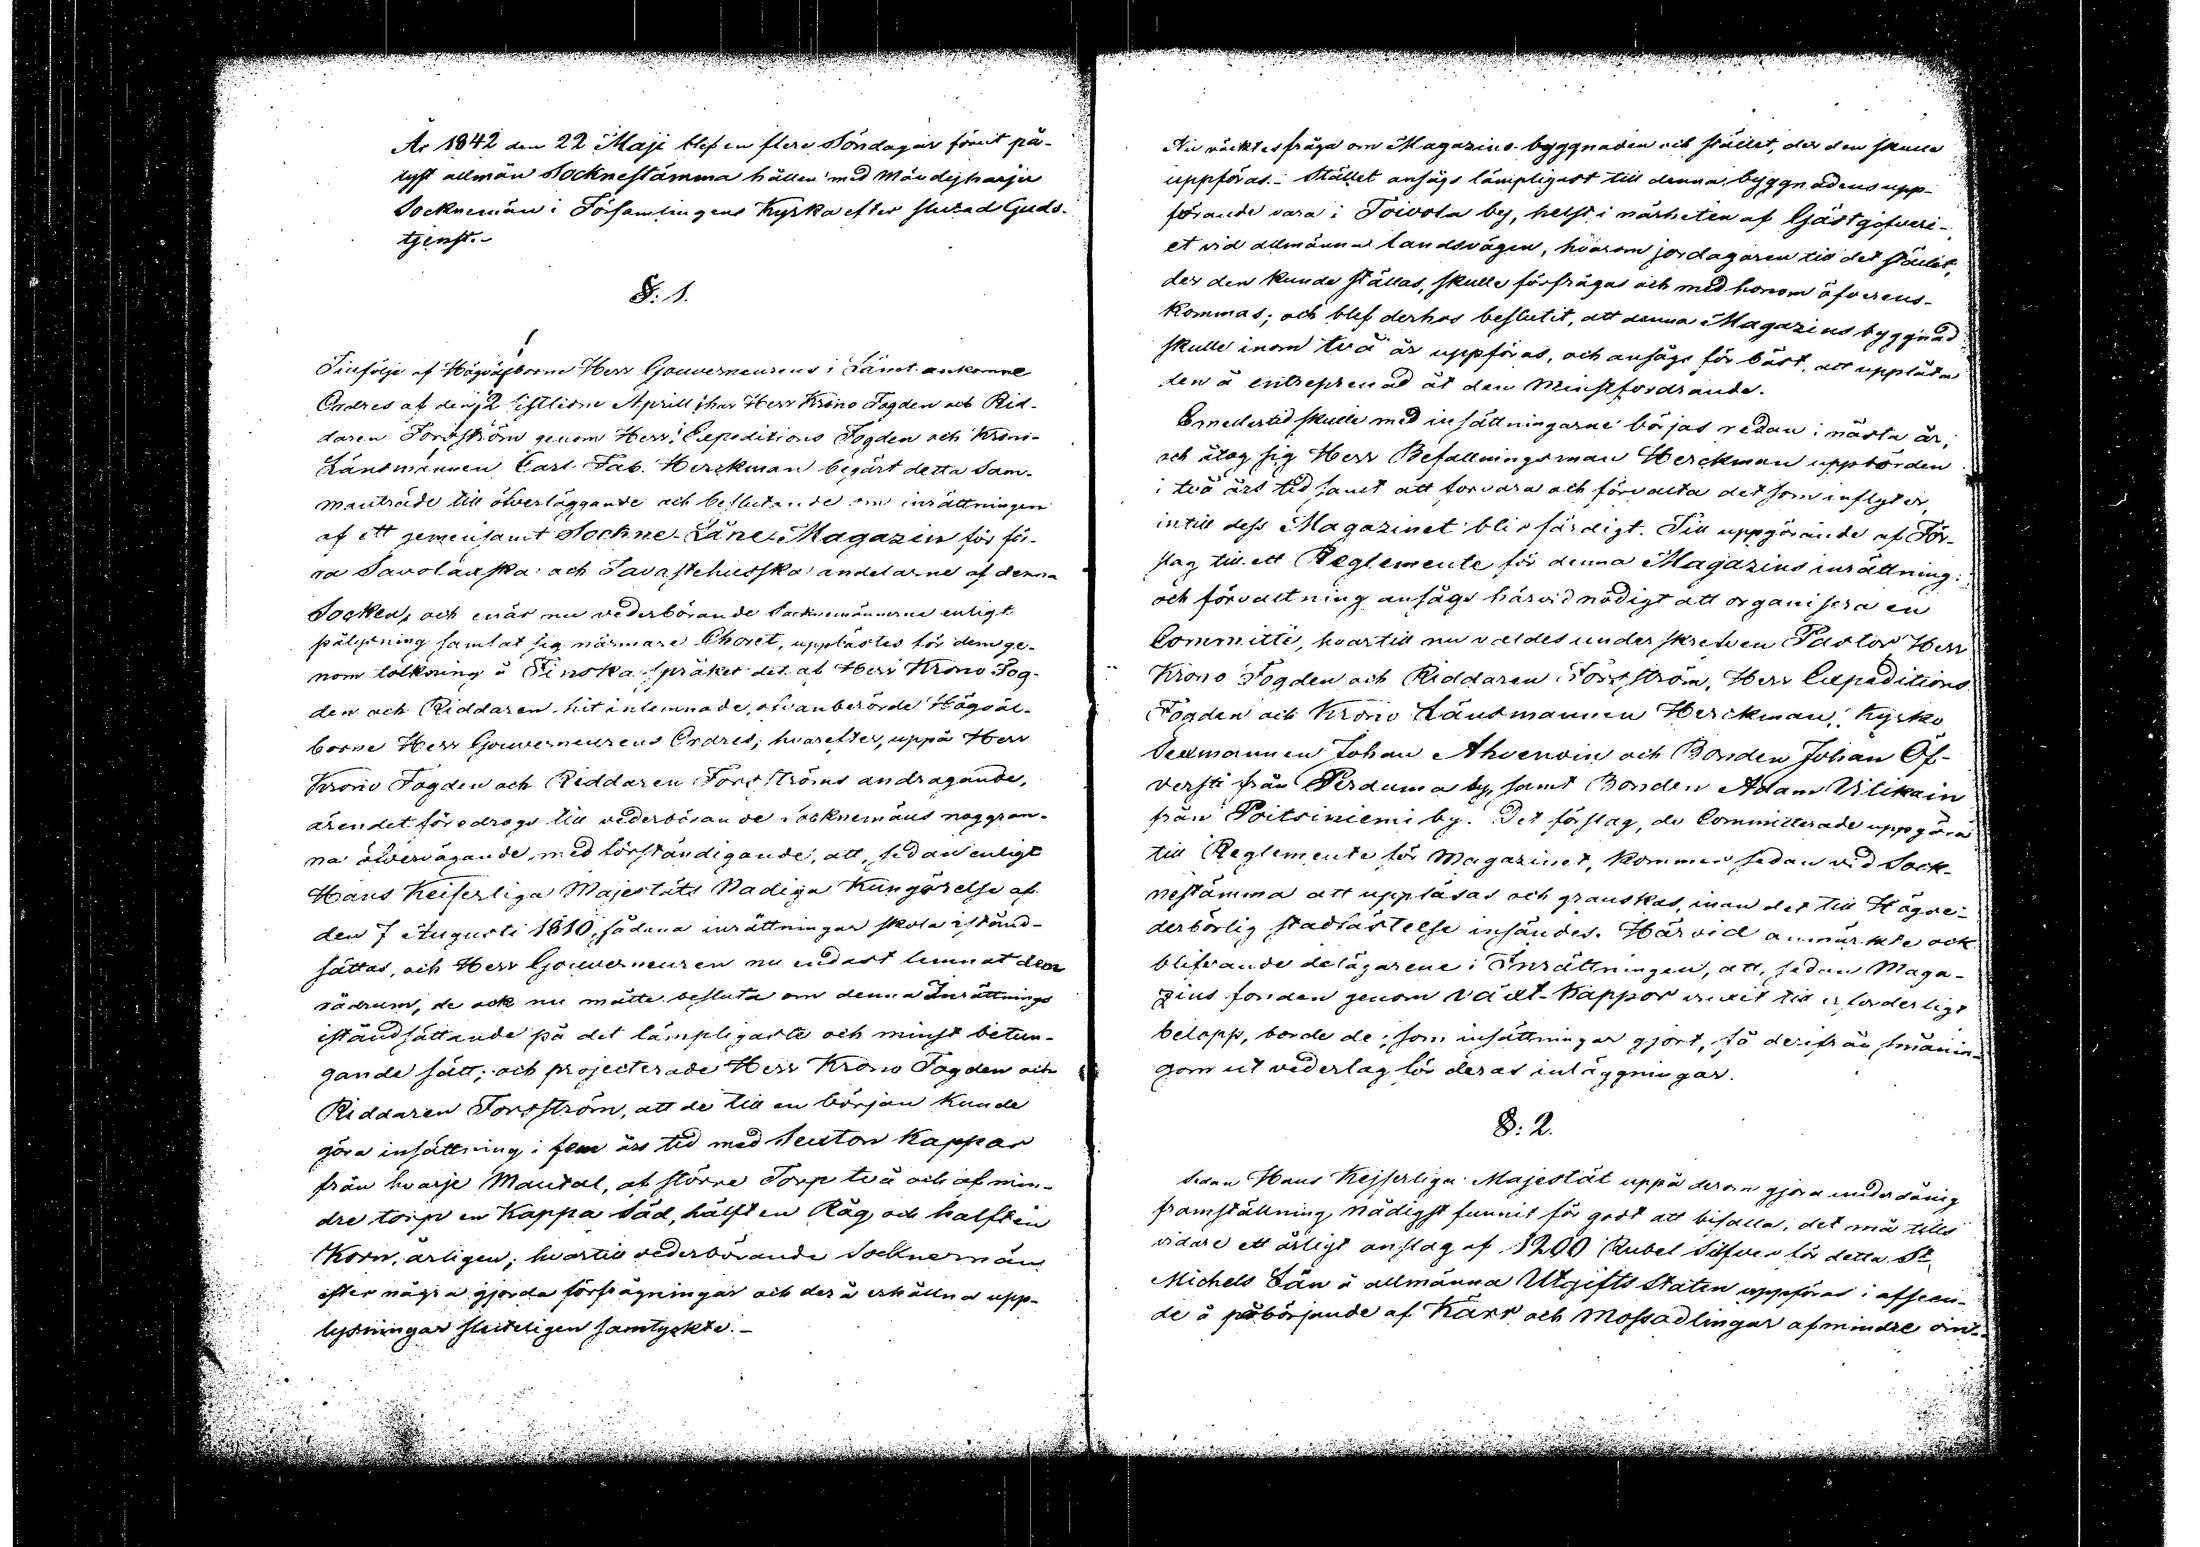 År 1842 den 22 Maji blef en flere Söndagar förut på-
lyst allmän Socknestämma hållen med Mändyharju
Socknemän i Församlingens Kyrka efter slutad Guds-
tjenst.-
§: 1.
Tilfölje af Högvälborne Herr Gouverneurens i Länet ankomne
Ordres af den 12 sistlidne Aprill har Herr Krono Fogden och Rid-
daren Forsström genom Herr Expeditions Fogden och Krono-
Länsmannen Carl Fab. Herckman begärt detta Sam-
manträde till öfverläggande och beslutande om inrättningen
af ett gemensamt Sockne-Låne-Magazin för för-
ra Savolaxska och Tavastehusska andelarne af denna
Socken, och enär nu vederbörande Socknemännerne enligt
pålysning samlat sig närmare Choret, upplästes för dem ge-
nom tolkning å Finska språket det af Herr Krono Fog-
den och Riddaren hit inlemnade, ofvanberörde Högväl-
borne Herr Gouverneurens Ordres; hvarefter, uppå Herr
Krono Fogden och Riddaren Forsströms andragande,
ärendet föredrogs till vederbörande Socknemäns noggran-
na öfvervägande, med förständigande, att, sedan enligt
Hans Keiserliga Majestäts Nådiga Kungörelse af
den 7 Augusti 1810, sådana inrättningar skola istånd-
sättas, och Herr Gouverneuren nu endast lemnat dem
rådrum, de ock nu måtte besluta om denna Inrättnings
iståndsättande på det lämpligaste och minst betun-
gande sätt; och projecterade Herr Krono Fogden och
Riddaren Forsström, att de till en början kunde
göra insättning i fem års tid med Sexton Kappar
från hvarje Mantal, af större Torp två och af min-
dre torp en Kappa Säd, hälften Råg och halften
Korn, årligen; hvartill vederbörande Socknemän
efter några gjorda förfrågningar och derå erhållna upp-
lysningar sluteligen samtyckte.-
Nu väcktes fråga om Magazins-byggnaden och stället, der den skulle
uppföras.- Stället ansågs lämpligast till denna byggnadens upp-
förande vara i Toivola by, helst i närheten af Gästgifveri-
et vid allmänna landsvägen, hvarom jordagaren till det stället,
der den kunde ställas, skulle förfrågas och med honom öfverens-
kommas; och blef derhos beslutit, att denna Magazins byggnad
skulle inom två år uppföras, och ansågs för bäst, att upplåta
den å entreprenad åt den Minstfordrande.
Emellertid skulle med insättningarne börjas redan i nästa år,
och åtog sig Herr Befallningsman Herckman uppbörden
i två års tid samt att forvara och förvalta det som inflyter,
intill dess Magazinet blir färdigt. Till uppgörande af För-
slag till ett Reglemente för denna Magazins inrättning
och förvaltning ansågs härvid nödigt att organisera en
Committé, hvartill nu valdes underskrefven Pastor Herr
Krono Fogden och Riddaren Forsström, Herr Expeditions
Fogden och Krono Länsmannen Herckman, Kyrko
Sexmannen Johan Ahvenoin och Bonden Johan Öf-
versti från Perduma by, samt Bonden Adam Vilikain
från Poitsiniemi by. Det förslag, de Committerade uppgöra
till Reglemente för Magazinet, kommer sedan vid Sock-
nestämma att uppläsas och granskas, innan det till Högve-
derbörlig stadfästelse insändes. Härvid anmärkte ock
blifvande delägarene i Inrättningen, att, sedan Maga-
zins fonden genom växt-Kappor vuxit till erforderligt
belopp, borde de, som insättningar gjort, få derifrån smånin-
gom ut vederlag för deras inläggningar.
§: 2.
Sedan Hans Kejserliga Majestät uppå derom gjord underdånig
framställning Nådigst funnit för godt att bifalla, det må tills
vidare ett årligt anslag af 1200 Rubel Silfver för detta St
Michels Län å allmänna Utgifts Staten uppföras i afseen-
de å påbörjande af Kärr och Mossodlingar af mindre vid-